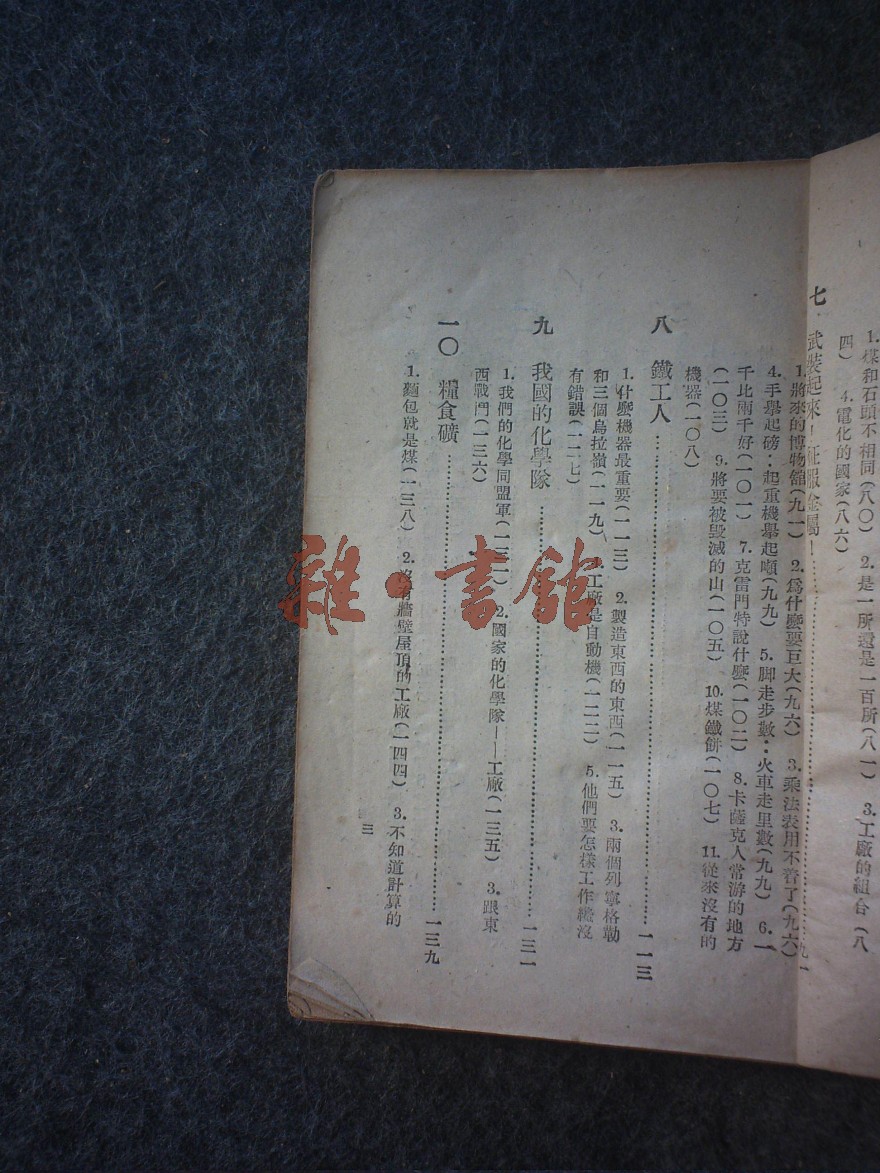 1. 煤和石頭不相同(八〇)　2. 是一所還是一百所(八一)　3. 工廠的組合(八
四)　4. 電化的國家(八六)
七　武裝起來！征服金屬！……九一
1. 將來的博物館(九一)　2. 爲什麼要巨大(九六)　3. 乘法表用不着了(九六)
4. 手舉起磅：起重機舉起噸(九九)　5. 脚走步數：火車走里數(九九)　6. 一
千比兩千好(一〇一)　7. 克雷門特說什麼(一〇二)　8. 卡薩克人常游的地方
(一〇三)　9. 將要被毀滅的山(一〇五)　10. 煤鐵餅(一〇七)　11. 從來沒有的
機器(一〇八)
八　鐵工人……一一三
1. 什麼機器最重要(一一三)　2. 製造東西的東西(一一五)　3. 兩個列寧格勒
和三個烏拉嶺(一一九)　工廠是自動機(一二二)　5. 他們要怎樣工作纔沒
有錯誤(一二七)
九　我國的化學隊……一三一
1. 我們的化學同盟軍(一三一)　2. 國家的化學隊——工廠(一三五)　3. 跟東
西戰鬥(一三六)
一〇　糧食礦……一三九
1. 麵包就是煤(一三八)　2. 沒有牆壁屋頂的工廠(一四四)　3. 不知道計算的
三
雜·書館